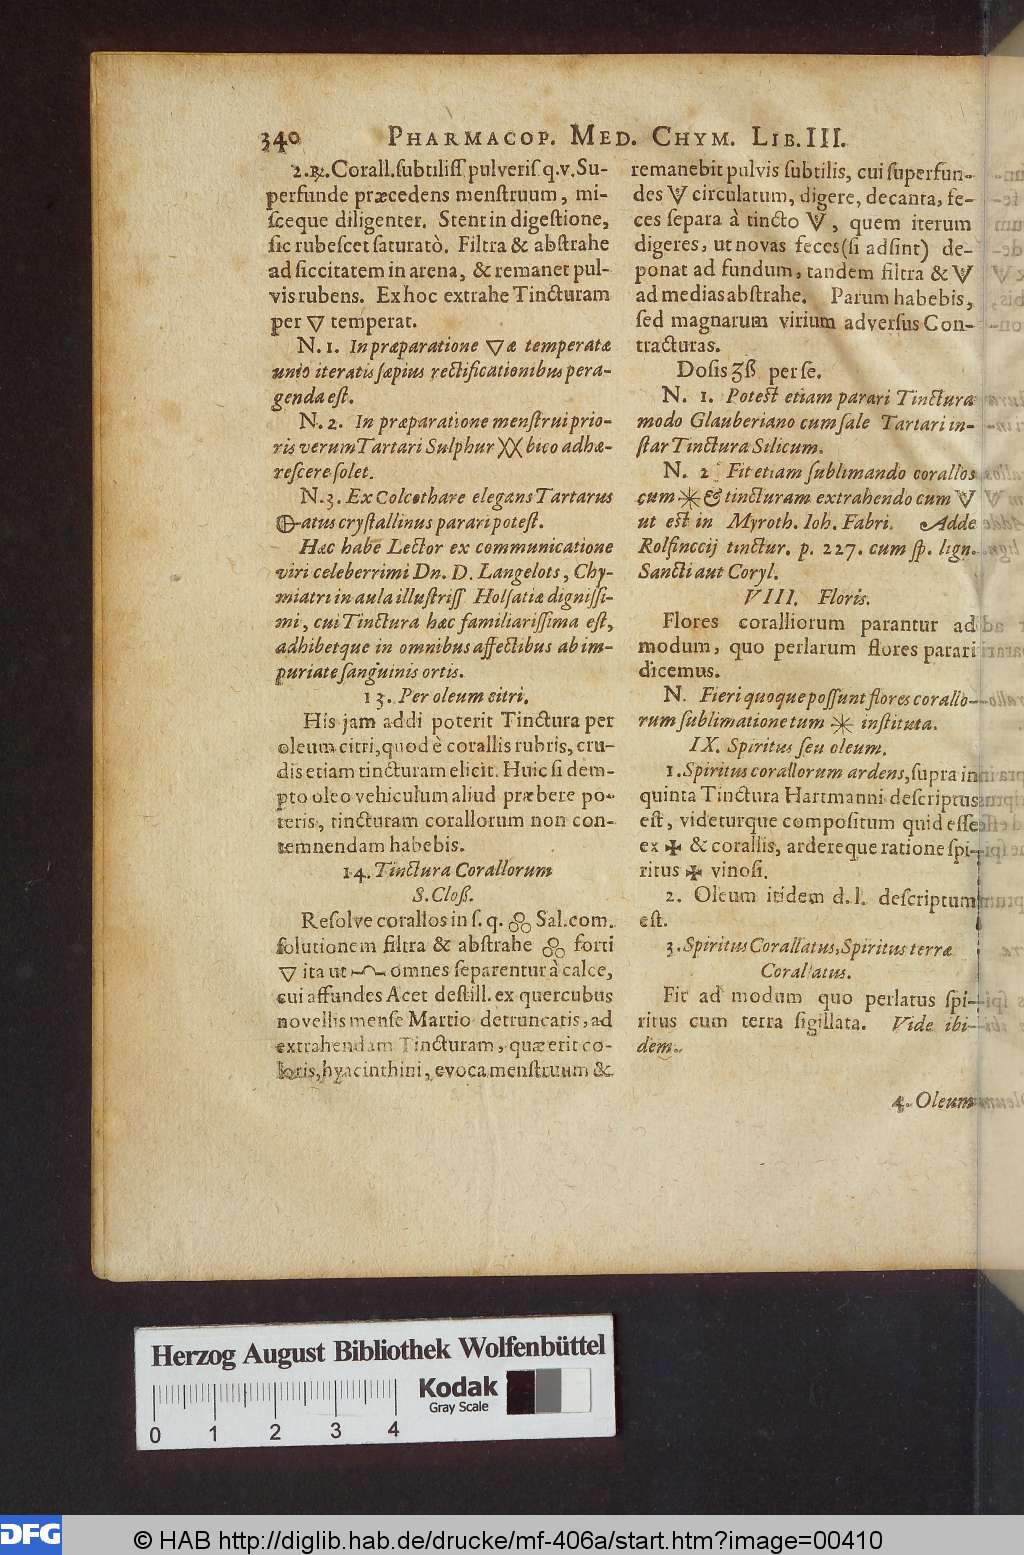 340 PHARMACOP. MED. CHYM. LIB. III.
2. ℞. Corall. subtiliſſ pulveriſ q. v. Su-
perfunde præcedens menſtruum, mi-
ſceque diligenter. Stent in digeſtione,
ſic rubeſcet ſaturatò. Filtra & abſtrahe
ad ſiccitatem in arena, & remanet pul-
vis rubens. Ex hoc extrahe Tincturam
per 🜄 temperat.
N. 1. In præparatione 🜄æ temperatæ
unio iteratis ſæpius rectificationibus pera-
genda eſt.
N. 2. In præparatione menſtrui prio-
ris verum Tartari Sulphur XX bico adhæ-
reſcere ſolet.
N. 3. Ex Colcothare elegans Tartarus
🜖-atus cryſtallinus parari poteſt.
Hæc habe Lector ex communicatione
viri celeberrimi Dn. D. Langelots, Chy-
miatri in aula illuſtriſſ Holſatiæ digniſſi-
mi, cui Tinctura hæc familiariſſima eſt,
adhibetque in omnibus affectibus ab im-
puriate ſangùinis ortis.
13. Per oleum citri.
His jam addi poterit Tinctura per
oleum citri, quod è corallis rubris, cru-
dis etiam tincturam elicit. Huic ſi dem-
pto oleo vehiculum aliud præbere po-
teris, tincturam corallorum non con-
temnendam habebis.
14. Tinctura Corallorum
S. Cloß.
Reſolve corallos in ſ. q. Sal. com.
ſolutionem filtra & abſtrahe forti
🜄 ita ut omnes ſeparentur à calce,
cui affundes Acet deſtill. ex quercubus
novellis menſe Martio detruncatis, ad
extrahendam Tincturam, quæ erit co-
loris, hyacinthini, evoca menſtruum &
remanebit pulvis ſubtilis, cui ſuperfun-
des 🜈 circulatum, digere, decanta, fe-
ces ſepara à tincto 🜈, quem iterum
digeres, ut novas feces (ſi adſint) de-
ponat ad fundum, tandem filtra & 🜈
ad medias abſtrahe. Parum habebis,
ſed magnarum virium adverſus Con-
tracturas.
Doſis ʒß per ſe.
N. 1. Poteſt etiam parari Tinctura
modo Glauberiano cum ſale Tartari in-
ſtar Tinctura Silicum.
N. 2 Fit etiam ſublimando corallos
cum ✳ & tincturam extrahendo cum 🜈
ut eſt in Myroth. Ioh. Fabri. Adde
Rolfinccij tinctur. p. 227. cum ſp. lign.
Sancti aut Coryl.
VIII. Floris.
Flores coralliorum parantur ad
modum, quo perlarum flores parari
dicemus.
N. Fieri quoque poſſunt flores corallo-
rum ſublimatione tum ✳ inſtituta.
IX. Spiritus ſeu oleum.
1. Spiritus corallorum ardens, ſupra in
quinta Tinctura Hartmanni deſcriptus
eſt, videturque compoſitum quid eſſe
ex ✠ & corallis, ardereque ratione ſpi-
ritus ✠ vinoſi.
2. Oleum itidem d. l. deſcriptum
eſt.
3. Spiritus Corallatus, Spiritus terræ
Corallatus.
Fit ad modum quo perlatus ſpi-
ritus cum terra ſigillata. Vide ibi-
dem.
4. Oleum
Herzog August Bibliothek Wolfenbüttel
Kodak
Gray Scale
0 1 2 3 4
DFG © HAB http://diglib.hab.de/drucke/mf-406a/start.htm?image=00410